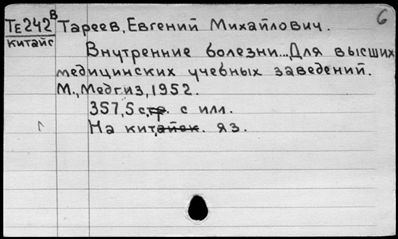 6
ТЕ242В Тареев, Евгений Михайлович.
китайс
Внутренние болезни...Для высших
медицинских учебных заведений.
М., Медгиз, 1952.
357,5 стр. с илл.
На китайск. яз.